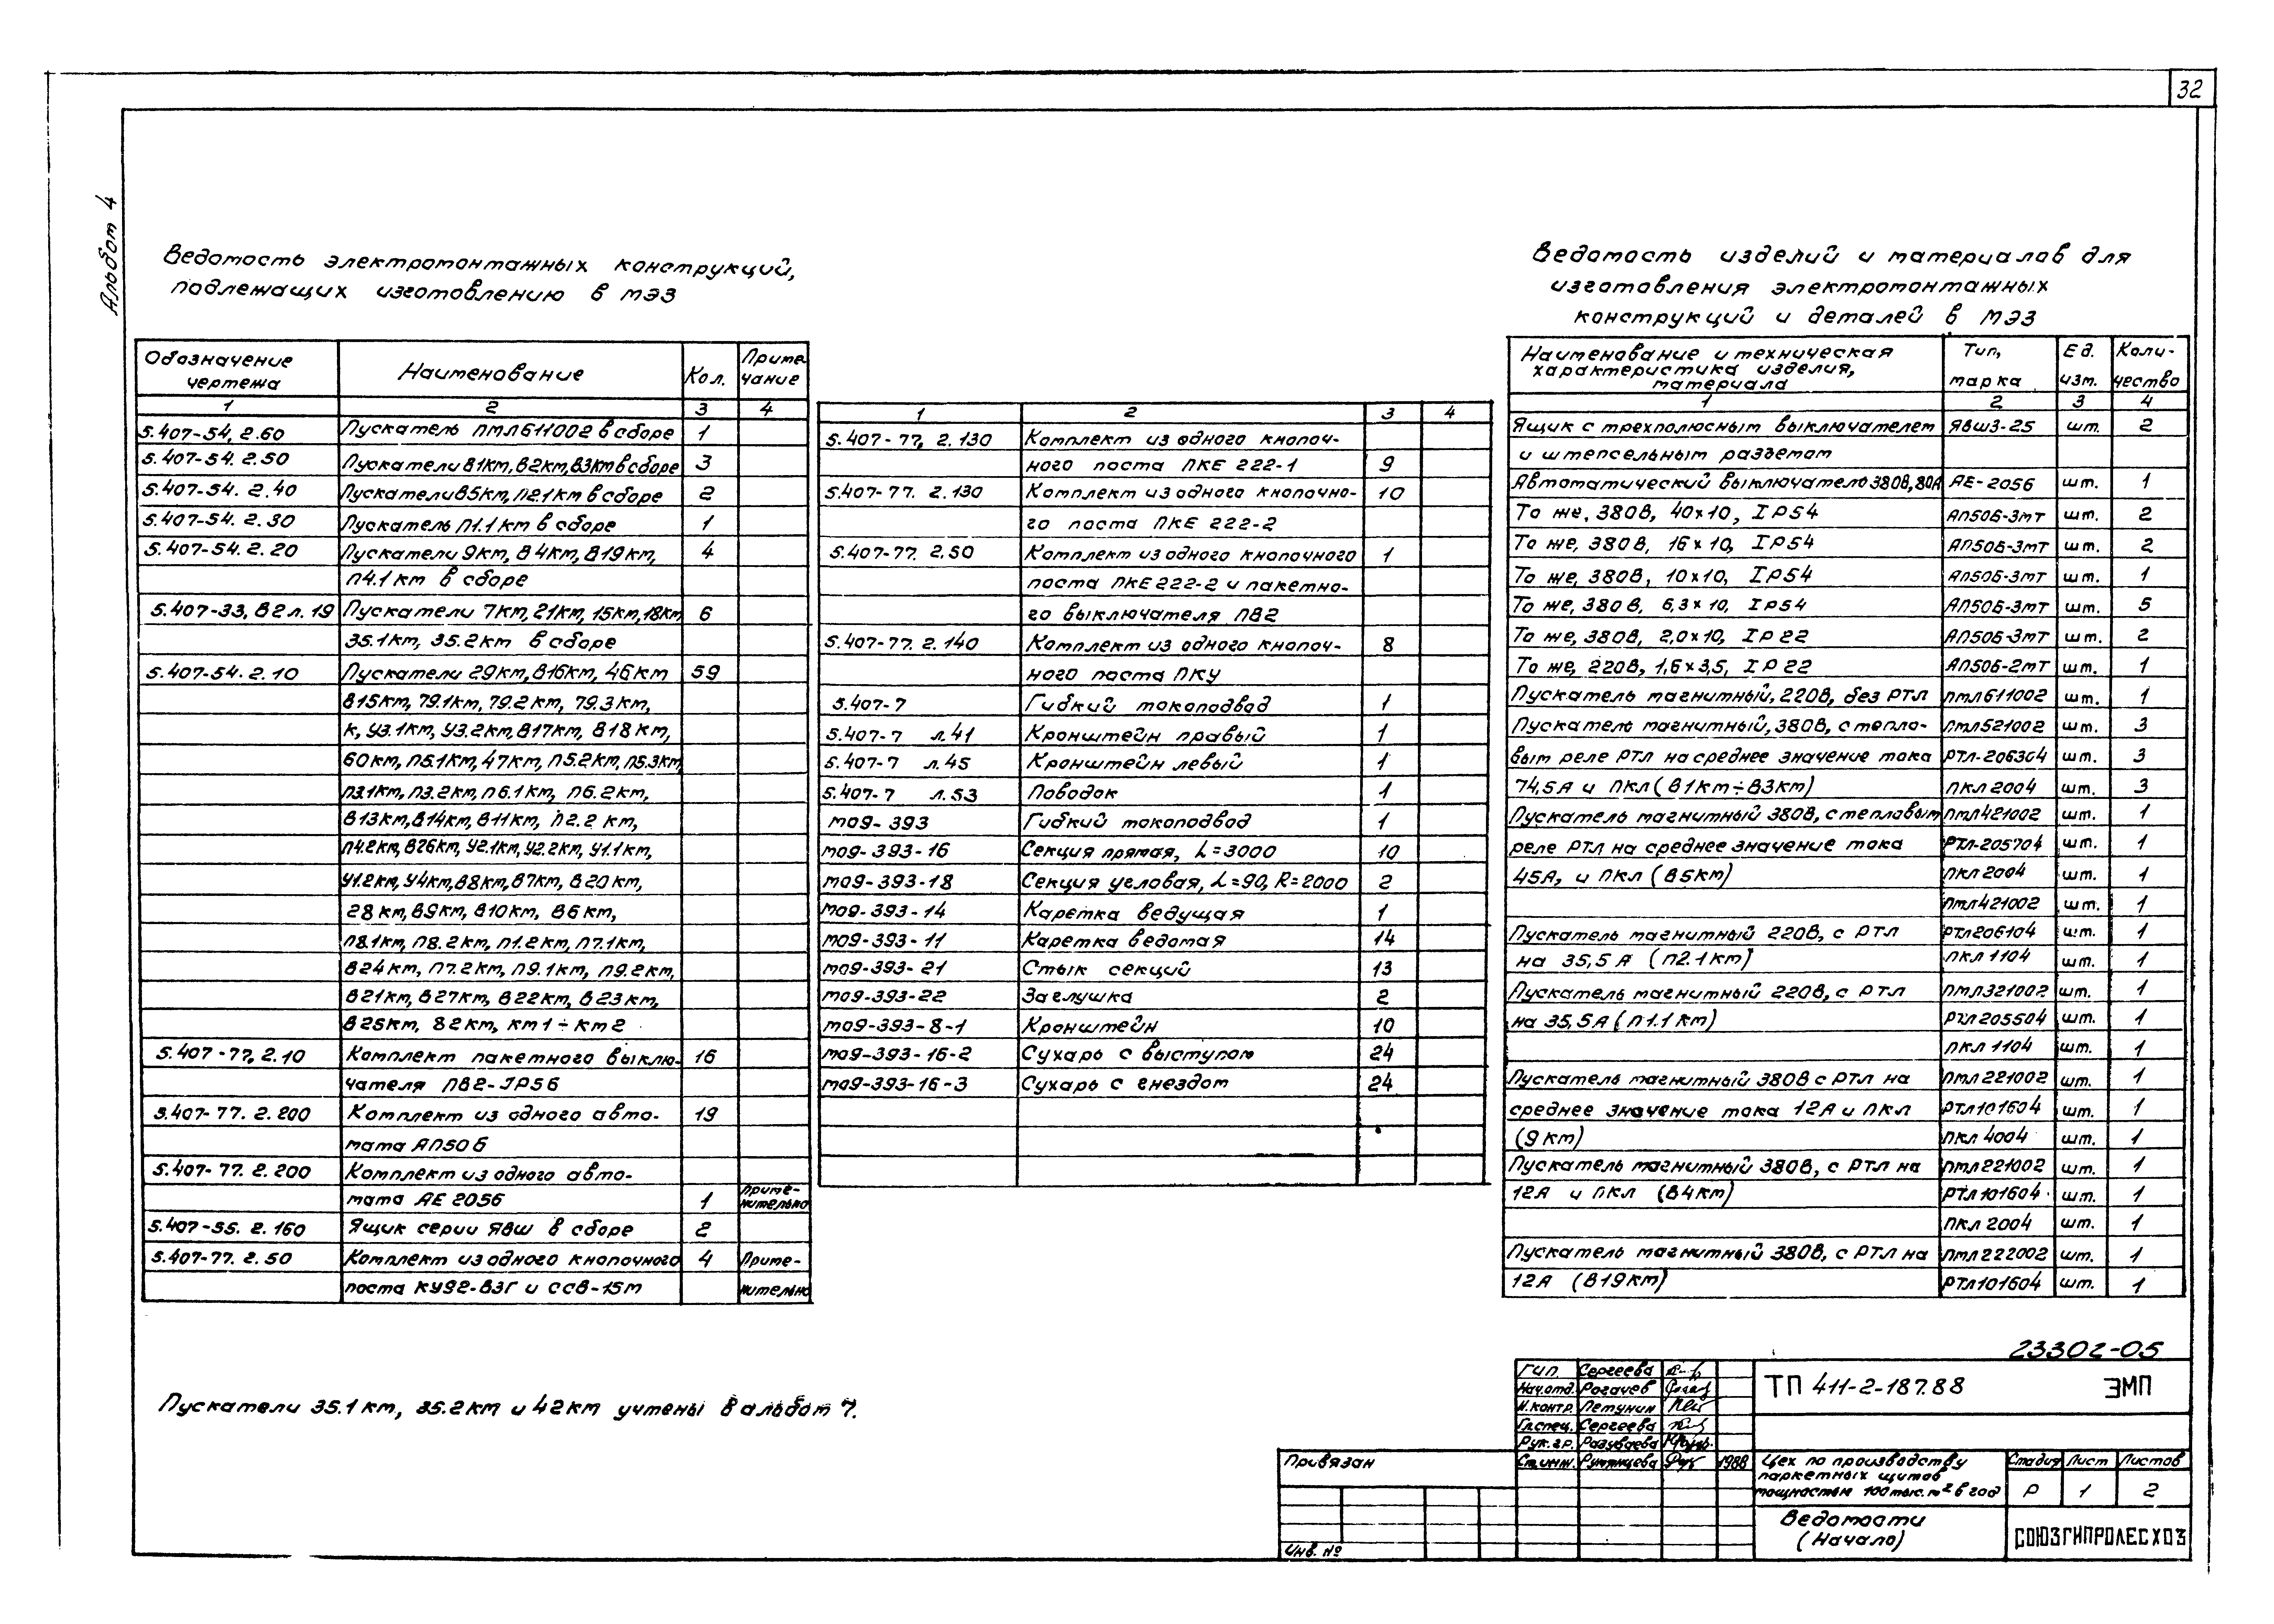 32
Альбом 4
Ведомость электромонтажных конструкций,
подлежащих изготовлению в МЭЗ
Обозначение чертежа | Наименование | Кол. | Примечание
1 | 2 | 3 | 4
5.407-54, 2.60 | Пускатель ПМЛ611002 в сборе | 1
5.407-54. 2.50 | Пускатели В1КМ, В2КМ, В3КМ в сборе | 3
5.407-54. 2.40 | Пускатели В5КМ, П2.1КМ в сборе | 2
5.407-54. 2.30 | Пускатель П1.1КМ в сборе | 1
5.407-54. 2.20 | Пускатели 9КМ, В4КМ, В19КМ, | 4
П4.1КМ в сборе
5.407-33, В2 л. 19 | Пускатели 7КМ, 21КМ, 15КМ, 18КМ | 6
35.1КМ, 35.2КМ в сборе
5.407-54. 2.10 | Пускатели 29КМ, В16КМ, 46КМ | 59
В15КМ, 79.1КМ, 79.2КМ, 79.3КМ,
К, У3.1КМ, У3.2КМ, В17КМ, В18КМ,
60КМ, П5.1КМ, 47КМ, П5.2КМ, П5.3КМ,
П3.1КМ, П3.2КМ, П6.1КМ, П6.2КМ,
В13КМ, В14КМ, В11КМ, П2.2 КМ,
П4.2КМ, В26КМ, У2.1КМ, У2.2КМ, У1.1КМ,
У1.2КМ, У4КМ, В8КМ, В7КМ, В20КМ,
28КМ, В9КМ, В10КМ, В6КМ,
П8.1КМ, П8.2КМ, П1.2КМ, П7.1КМ,
В24КМ, П7.2КМ, П9.1КМ, П9.2КМ,
В21КМ, В27КМ, В22КМ, В23КМ,
В25КМ, 82КМ, КМ1÷КМ2
5.407-77, 2.10 | Комплект пакетного выклю- | 16
чателя ПВ2-IP56
5.407-77. 2.200 | Комплект из одного авто- | 19
мата АП50Б
5.407-77. 2.200 | Комплект из одного авто-
мата АЕ 2056 | 1 | Применительно
5.407-55. 2.160 | Ящик серии ЯВШ в сборе | 2
5.407-77. 2.50 | Комплект из одного кнопочного | 4 | Приме-
поста КУ92-ВЗГ и ССВ-15М | нительно
1 | 2 | 3 | 4
5.407-77, 2.130 | Комплект из одного кнопоч-
ного поста ПКЕ 222-1 | 9
5.407-77. 2.130 | Комплект из одного кнопочно- | 10
го поста ПКЕ 222-2
5.407-77. 2.50 | Комплект из одного кнопочного | 1
поста ПКЕ 222-2 и пакетно-
го выключателя ПВ2
5.407-77. 2.140 | Комплект из одного кнопоч- | 8
ного поста ПКУ
5.407-7 | Гибкий токоподвод | 1
5.407-7 л.41 | Кронштейн правый | 1
5.407-7 л.45 | Кронштейн левый | 1
5.407-7 л.53 | Поводок | 1
М09-393 | Гибкий токоподвод | 1
М09-393-16 | Секция прямая, L=3000 | 10
М09-393-18 | Секция угловая, L=90, R=2000 | 2
М09-393-14 | Каретка ведущая | 1
М09-393-11 | Каретка ведомая | 14
М09-393-21 | Стык секций | 13
М09-393-22 | Заглушка | 2
М09-393-8-1 | Кронштейн | 10
М09-393-16-2 | Сухарь с выступом | 24
М09-393-16-3 | Сухарь с гнездом | 24
Ведомость изделий и материалов для
изготовления электромонтажных
конструкций и деталей в МЭЗ
Наименование и техническая характеристика изделия, материала | Тип, марка | Ед. изм. | Количество
1 | 2 | 3 | 4
Ящик с трехполюсным выключателем | ЯВШ3-25 | шт. | 2
и штепсельным разъемом
Автоматический выключатель 380В, 80А | АЕ-2056 | шт. | 1
То же, 380В, 40х10, IP54 | АП50Б-3МТ | шт. | 2
То же, 380В, 16х10, IP54 | АП50Б-3МТ | шт. | 2
То же, 380В, 10х10, IP54 | АП50Б-3МТ | шт. | 1
То же, 380В, 6,3х10, IP54 | АП50Б-3МТ | шт. | 5
То же, 380В, 2,0х10, IP22 | АП50Б-3МТ | шт. | 2
То же, 220В, 1,6х3,5, IP22 | АП50Б-2МТ | шт. | 1
Пускатель магнитный, 220В, без РТЛ | ПМЛ611002 | шт. | 1
Пускатель магнитный, 380В, с тепло- | ПМЛ521002 | шт. | 3
вым реле РТЛ на среднее значение тока | РТЛ-206304 | шт. | 3
74,5А и ПКЛ (В1КМ÷В3КМ) | ПКЛ 2004 | шт. | 3
Пускатель магнитный 380В, с тепловым | ПМЛ421002 | шт. | 1
реле РТЛ на среднее значение тока | РТЛ-205704 | шт. | 1
45А, и ПКЛ (В5КМ) | ПКЛ 2004 | шт. | 1
ПМЛ421002 | шт. | 1
Пускатель магнитный 220В, с РТЛ | РТЛ206104 | шт. | 1
на 35,5А (П2.1КМ) | ПКЛ 1104 | шт. | 1
Пускатель магнитный 220В, с РТЛ | ПМЛ321002 | шт. | 1
на 35,5А (П1.1КМ) | РТЛ205504 | шт. | 1
ПКЛ 1104 | шт. | 1
Пускатель магнитный 380В с РТЛ на | ПМЛ221002 | шт. | 1
среднее значение тока 12А и ПКЛ | РТЛ101604 | шт. | 1
(9КМ) | ПКЛ 4004 | шт. | 1
Пускатель магнитный 380В, с РТЛ на | ПМЛ221002 | шт. | 1
12А и ПКЛ (В4КМ) | РТЛ101604 | шт. | 1
ПКЛ 2004 | шт. | 1
Пускатель магнитный 380В, с РТЛ на | ПМЛ222002 | шт. | 1
12А (В19КМ) | РТЛ101604 | шт. | 1
Пускатели 35.1КМ, 35.2КМ и 42КМ учтены в альбом 7.
23302-05
ГИП | Сергеева
Нач.отд. | Рогачев
Н.контр. | Петунин
Гл.спец. | Сергеева
Рук.гр. | Разуваева
Ст.инж. | Румянцева | 1988
ТП 411-2-187.88 ЭМП
Привязан
Инв. №
Цех по производству
паркетных щитов
мощностью 100 тыс. м² в год
Стадия | Лист | Листов
Р | 1 | 2
Ведомости
(Начало)
СОЮЗГИПРОЛЕСХОЗ